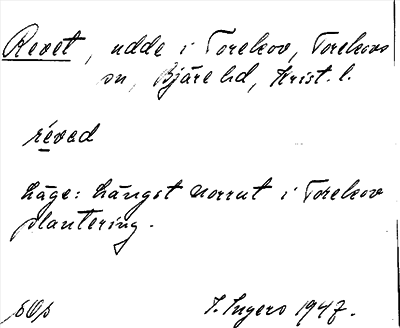 Revet, udde i Torekov, Torekovs
sn, Bjäre hd, Krist. l.
réved
Läge: Längst norrut i Torekov
plantering.
I. Ingers 1947.